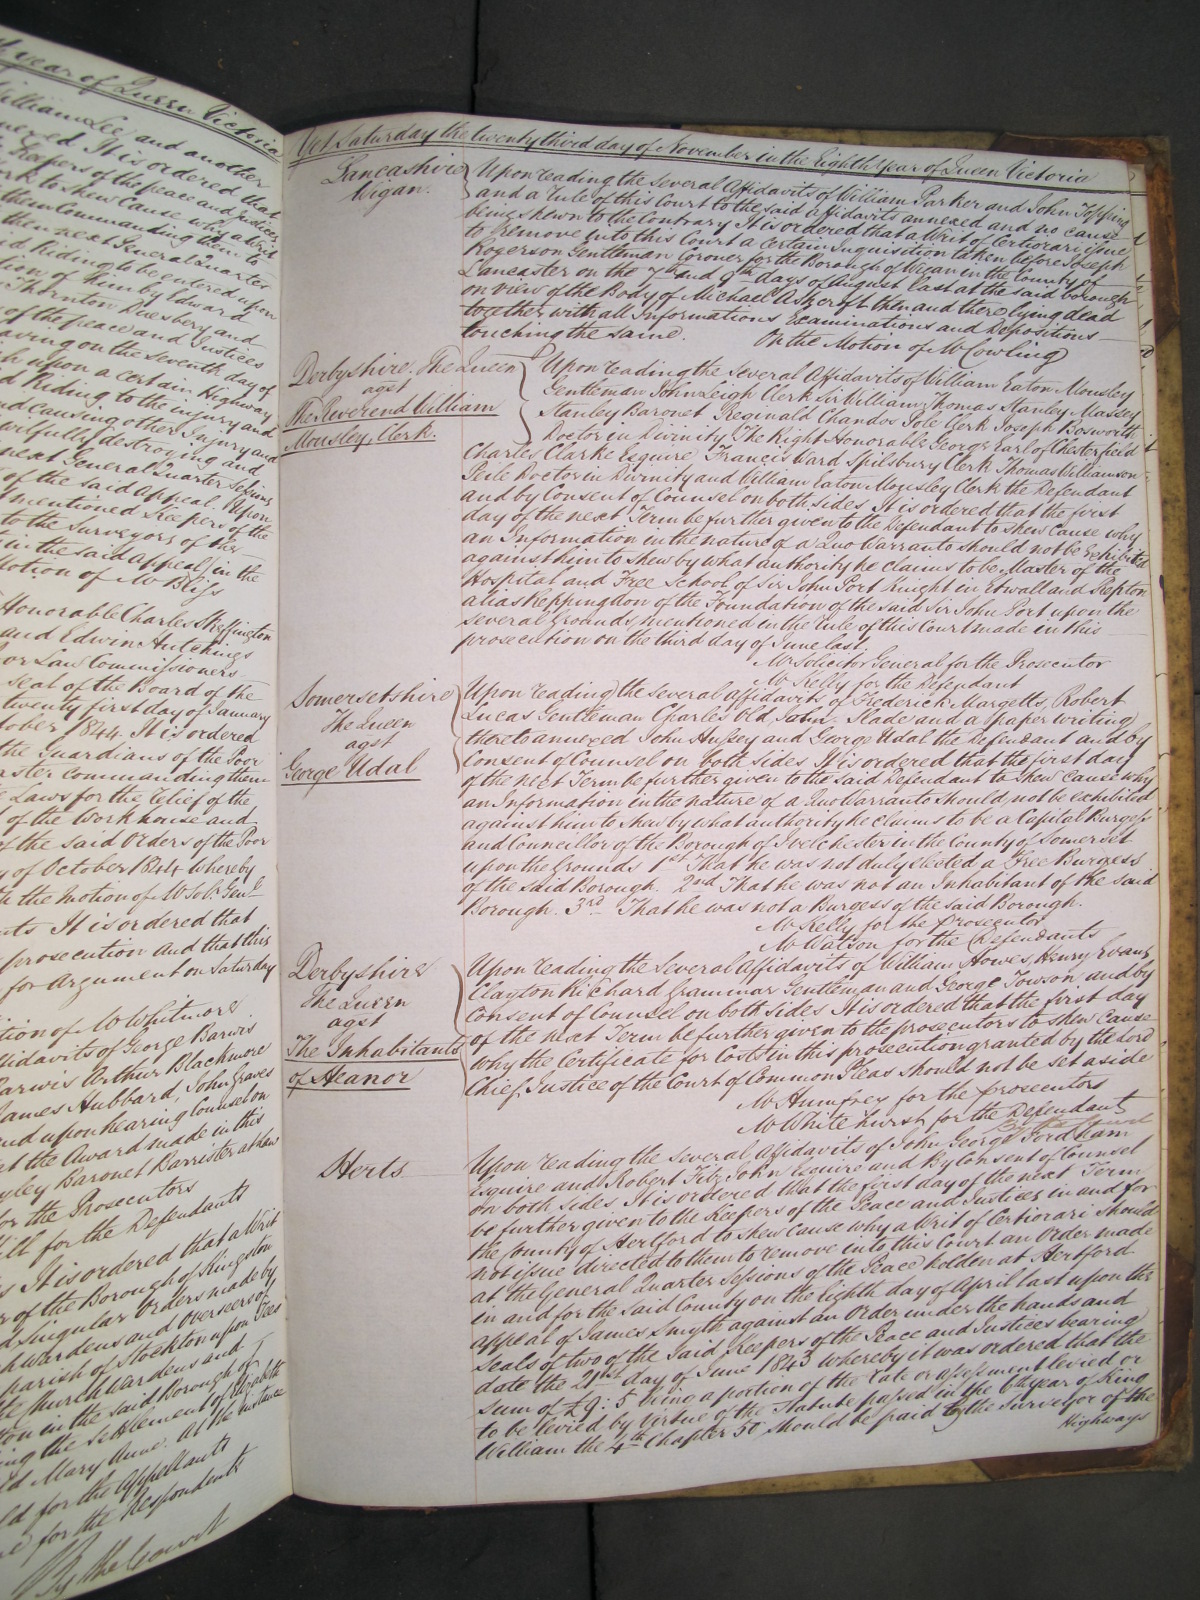 th year of Queen Victoria
William Lee and another
nexed It is ordered that
Keepers of the peace and Justices
ork to shew cause why a Writ
them Commanding them to
then next General Quarter
d Riding to be entered upon
tion of them by Edward
Thornton Duesbery and
of the peace and Justices
aving on the seventh day of
h upon a certain Highway
d Riding to the injury and
nd causing other Injury and
wilfully destroying and
next General Quarter Sessions
of the said Appeal. Upon
mentioned Keepers of the
to the Surveyors of the
in the said Appeal in the
Motion of Mr Bliss
Honorable Charles Skeffington
and Edwin Hutchings
or Law Commissioners
seal of the Board of the
twenty first day of January
tober 1844 It is ordered
the Guardians of the Poor
aster commanding them
Laws for the relief of the
of the Workhouse and
of the said Orders of the Poor
y of October 1844 whereby
th the motion of Mr Solr. Genl.
nts It is ordered that
prosecution and that this
for Argument on Saturday
tion of Mr Whitmore
ffidavits of George Barwis
Barwis Arthur Blackmore
James Hubbard, John Graves
and upon hearing Counsel on
at the Award made in this
yley Baronet Barrister at law
for the Prosecutors
ill for the Defendants
s It is ordered that a Writ
r of the Borough of Kingston
d singular Orders made by
hwardens and Overseers of
parish of Stockton upon Tees
the Churchwardens and
ton in the said Borough of
ing the settlement of Elizabeth
d Mary Anne. At the instance
ld for the Appellants
for the Respondents
By the Court
Yet Saturday the twenty third day of November in the Eighth Year of Queen Victoria
Lancashire
Wigan.
Upon reading the several Affidavits of William Parker and John Topping
and a Rule of this Court to the said affidavits annexed and no cause
being shewn to the Contrary It is ordered that a Writ of Certiorari issue
to remove into this Court a certain Inquisition taken before Joseph
Rogerson Gentleman Coroner for the Borough of Wigan in the County of
Lancaster on the 7th and 9th days of August last at the said borough
on view of the Body of Michael Ashcroft then and there lying dead
together with all Informations Examinations and Depositions
touching the same. On the Motion of Mr Cowling
Derbyshire. The Queen
agst
The Reverend William
Mousley, Clerk.
Upon reading the several Affidavits of William Eaton Mousley
Gentleman John Leigh Clerk Sir William Thomas Stanley Massey
Stanley Baronet Reginald Chandos Pole Clerk Joseph Bosworth
Doctor in Divinity The Right Honorable George Earl of Chesterfield
Charles Clarke Esquire Francis Ward Spilsbury Clerk Thomas Williamson
Peile Doctor in Divinity and William Eaton Mousley Clerk the Defendant
and by Consent of Counsel on both sides It is ordered that the first
day of the next Term be further given to the Defendant to shew cause why
an Information in the nature of a Quo Warranto should not be Exhibited
against him to shew by what authority he claims to be Master of the
Hospital and Free School of Sir John Port Knight in Etwall and Repton
alias Reppingdon of the Foundation of the said Sir John Port upon the
several grounds mentioned in the Rule of this Court made in this
prosecution on the third day of June last.
Mr Solicitor General for the Prosecutor
Mr Kelly for the Defendant
Somersetshire
The Queen
agst
George Udal
Upon reading the several affidavits of Frederick Margetts, Robert
Lucas Gentleman Charles Old, John Slade and a paper writing
thereto annexed John Hussey and George Udal the Defendant and by
Consent of Counsel on both sides It is ordered that the first day
of the next Term be further given to the said Defendant to shew cause why
an Information in the nature of a Quo Warranto should not be exhibited
against him to shew by what authority he claims to be a Capital Burgess
and Councillor of the Borough of Ivelchester in the County of Somerset
upon the Grounds 1st That he was not duly elected a Free Burgess
of the said Borough. 2nd That he was not an Inhabitant of the said
Borough. 3rd That he was not a Burgess of the said Borough.
Mr Kelly for the Prosecutor
Mr Watson for the Defendants
Derbyshire
The Queen
agst
The Inhabitants
of Heanor
Upon reading the several Affidavits of William Howes, Henry Evans
Clayton Richard Grammar Gentleman and George Towson and by
Consent of Counsel on both sides It is ordered that the first day
of the next Term be further given to the prosecutors to shew cause
why the Certificate for Costs in this prosecution granted by the Lord
Chief Justice of the Court of Common Pleas should not be set aside
Mr Humfrey for the prosecutors
Mr Whitehurst for the Defendants
By the Court
Herts
Upon reading the several Affidavits of John George Fordham
Esquire and Robert Fitz John Esquire and By Consent of Counsel
on both sides It is ordered that the first day of the next Term
be further given to the Keepers of the Peace and Justices in and for
the County of Hertford to shew cause why a Writ of Certiorari should
not issue directed to them to remove into this Court an Order made
at the General Quarter Sessions of the Peace holden at Hertford
in and for the said County on the Eighth day of April last upon the
appeal of James Smyth against an Order under the hands and
seals of two of the said Keepers of the Peace and Justices bearing
date the 21st day of June 1843 whereby it was ordered that the
sum of £9:5 being a portion of the Rate or assessment levied or
to be levied by virtue of the Statute passed in the 6th year of King
William the 4th Chapter 50 should be paid by the Surveyor of the
Highways